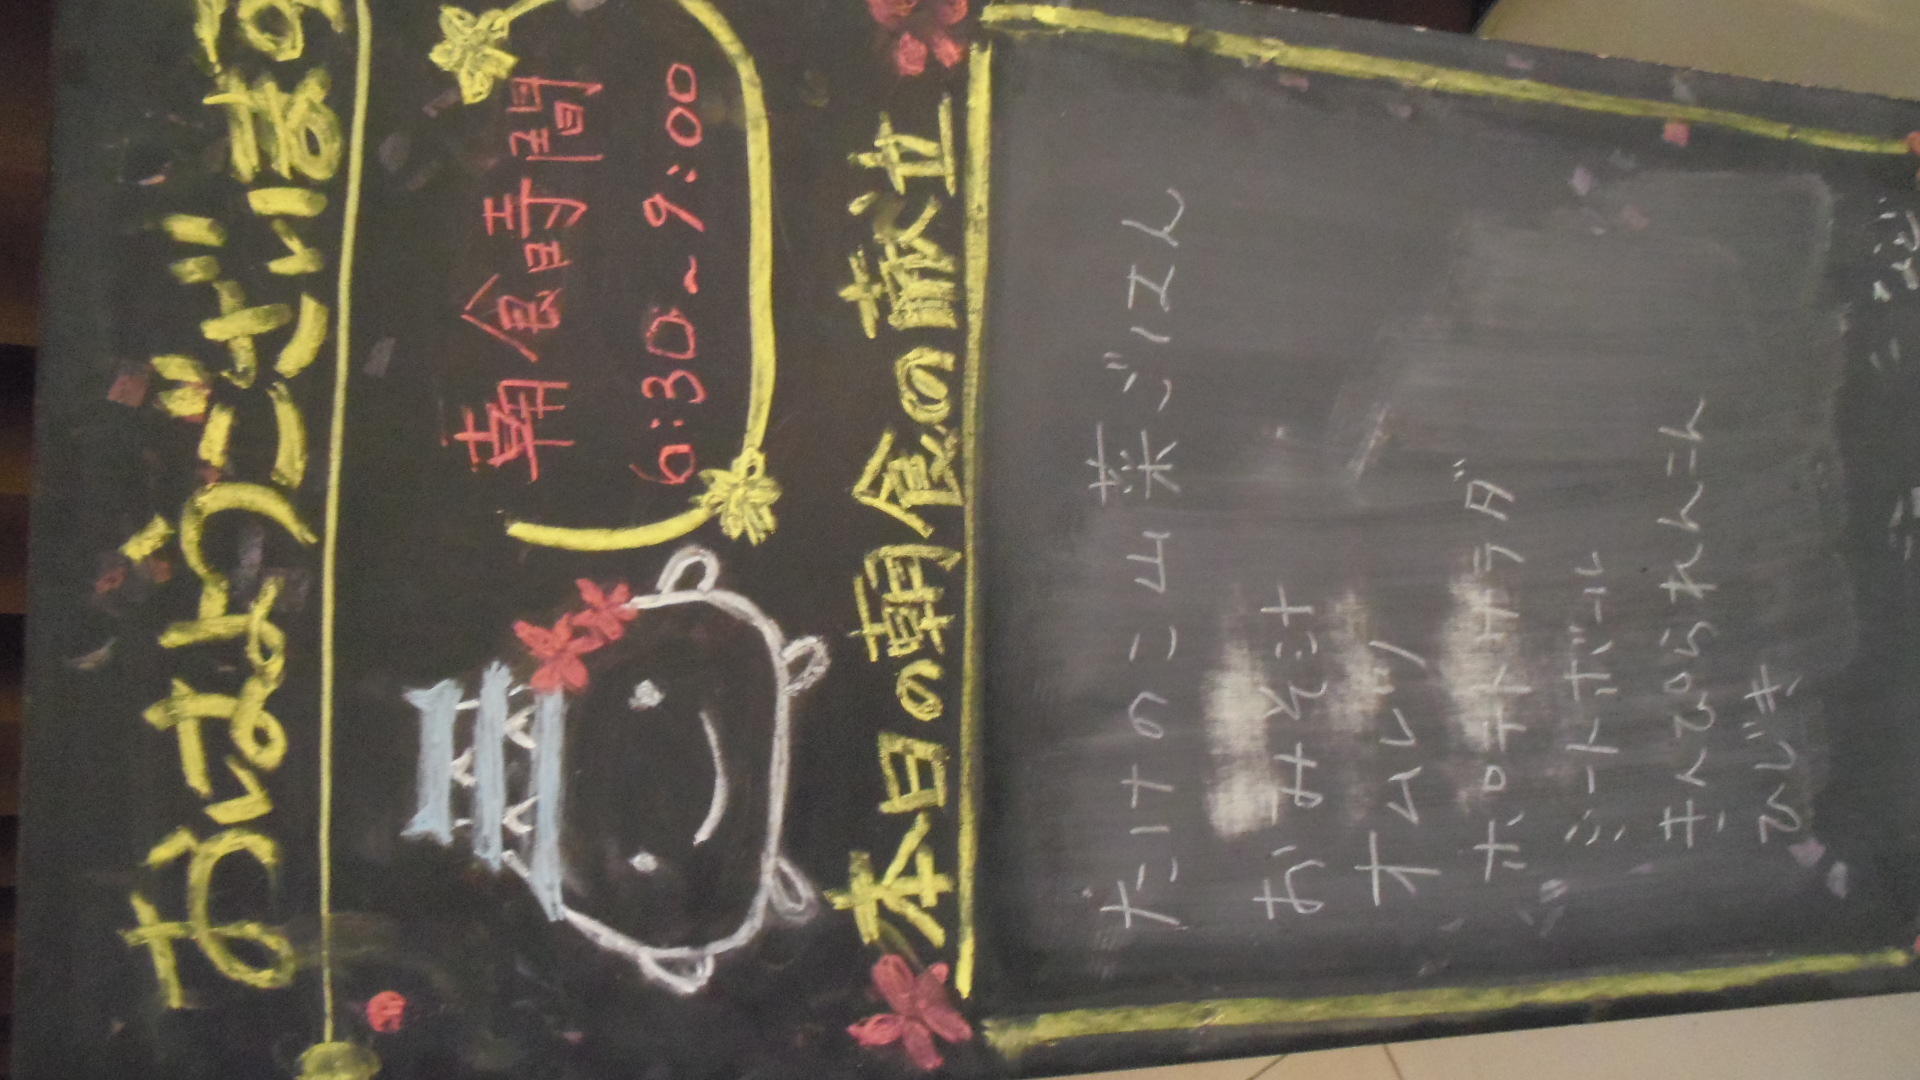 おはようございます
朝食時間
6:30~9:00
本日の朝食の献立
たけのこ山菜ごはん
おみそ汁
オムレツ
ポテトサラダ
ミートボール
きんぴられんこん
ひじき